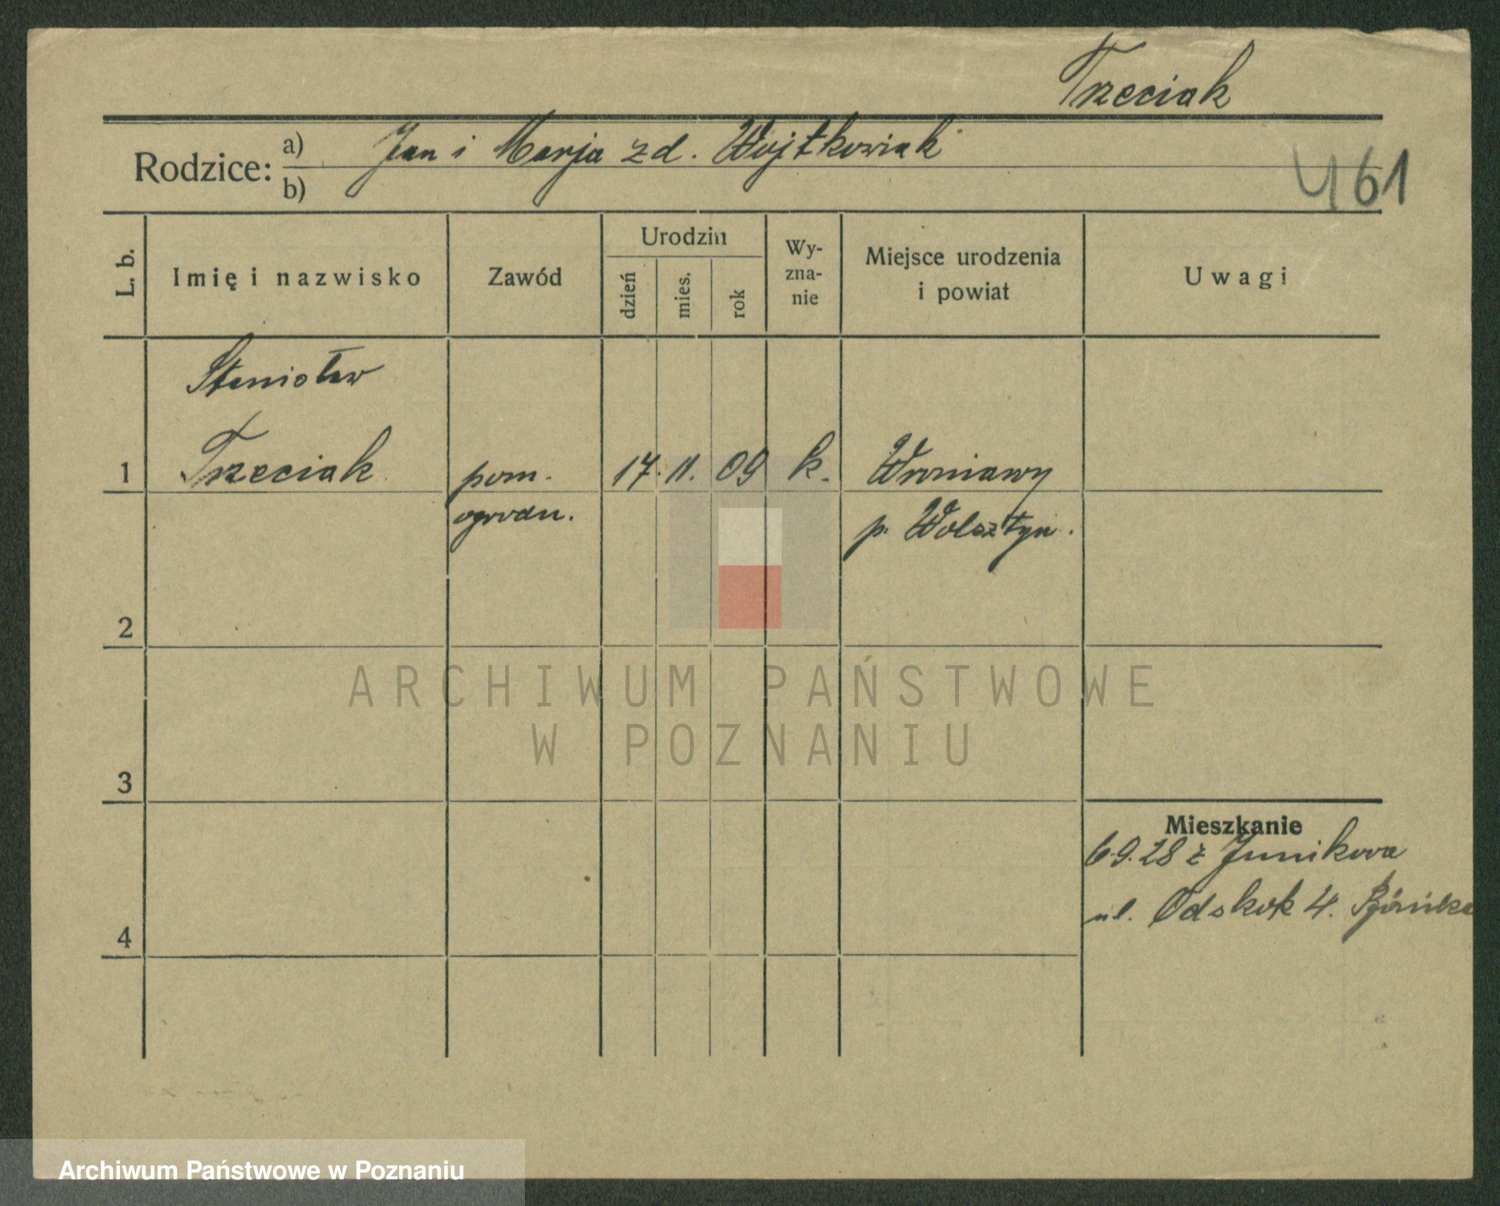 Trzeciak
Rodzice: a) Jan i Marja z d. Wojtkowiak
b)
461
L. b.
Imię i nazwisko
Zawód
Urodzin
dzień
mies.
rok
Wy-
zna-
nie
Miejsce urodzenia
i powiat
Uwagi
Stanisław
1 Trzeciak pom. 17. 11. 09 k. Wroniawy
ogrodn. p. Wolsztyn.
2
3
4
Mieszkanie
6.9.28 z Junikowa
ul. Odskok 4.
ARCHIWUM PAŃSTWOWE
W POZNANIU
Archiwum Państwowe w Poznaniu